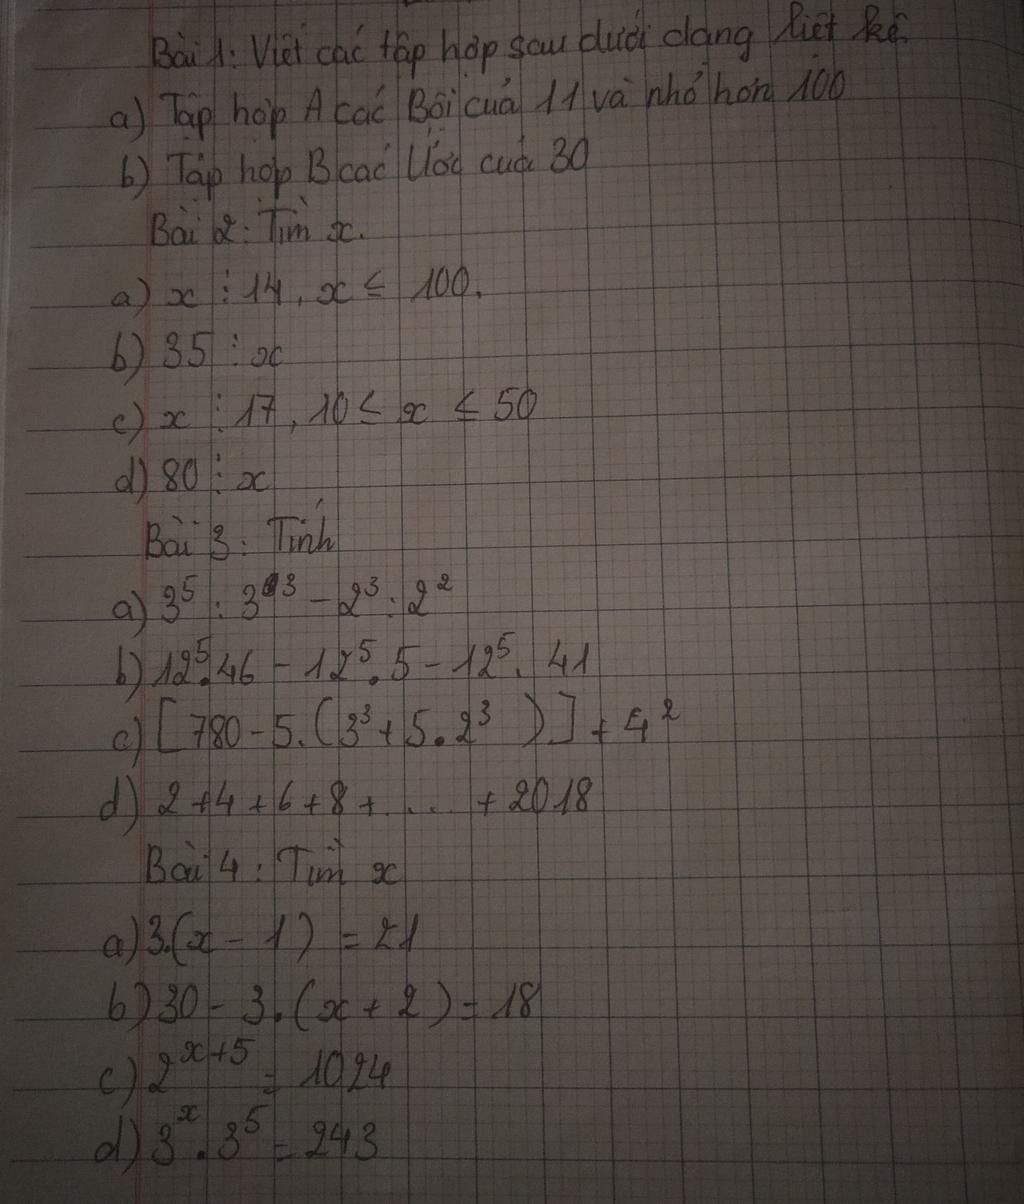 Bài 1: Viết các tập hợp sau dưới dạng liệt kê
a) Tập hợp A các Bội của 11 và nhỏ hơn 100
b) Tập hợp B các Ước của 30
Bài 2: Tìm x.
a) x ⋮ 14, x ≤ 100.
b) 35 ⋮ x
c) x ⋮ 17, 10 ≤ x ≤ 50
d) 80 ⋮ x
Bài 3: Tính
a) 3⁵ : 3³ - 2³ : 2²
b) 12⁵.46 - 12⁵.5 - 12⁵.41
c) [780 - 5.(3³ + 5.2³)] + 4²
d) 2 + 4 + 6 + 8 + .... + 2018
Bài 4: Tìm x
a) 3.(x - 1) = 21
b) 30 - 3.(x + 2) = 18
c) 2ˣ⁺⁵ = 1024
d) 3ˣ.3⁵ = 243